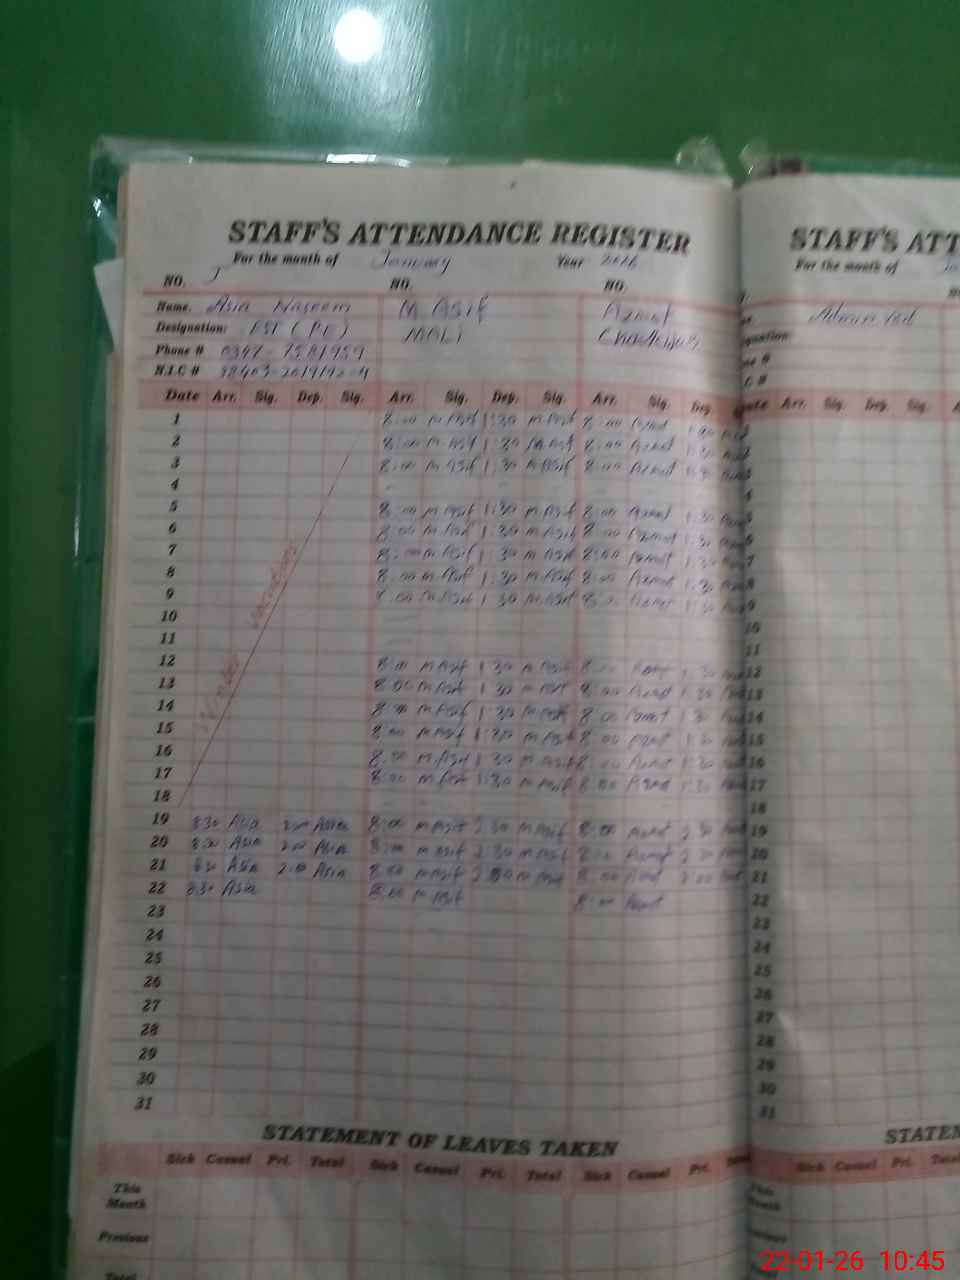 STAFF'S ATTENDANCE REGISTER
For the month of January Year 2026
NO. NO. NO.
Name. Asia Naseem M. Asif Azmat
Designation: EST (PE) MALI
Phone # 0347-7581959
N.I.C #
Date Arr. Sig. Dep. Sig. Arr. Sig. Dep. Sig. Arr. Sig. Dep.
1 8:00 M Asif 1:30 M Asif 8:00 Azmat 1:30
2 8:00 M Asif 1:30 M Asif 8:00 Azmat 1:30
3 8:00 M Asif 1:30 M Asif 8:00 Azmat 1:30
4
5 8:00 M Asif 1:30 M Asif 8:00 Azmat 1:30
6 8:00 M Asif 1:30 M Asif 8:00 Azmat 1:30
7 8:00 M Asif 1:30 M Asif 8:00 Azmat 1:30
8 8:00 M Asif 1:30 M Asif 8:00 Azmat 1:30
9 8:00 M Asif 1:30 M Asif 8:00 Azmat 1:30
10
11
12 8:00 M Asif 1:30 M Asif 8:00 Azmat 1:30
13 8:00 M Asif 1:30 M Asif 8:00 Azmat 1:30
14 8:00 M Asif 1:30 M Asif 8:00 Azmat 1:30
15 8:00 M Asif 1:30 M Asif 8:00 Azmat 1:30
16 8:00 M Asif 1:30 M Asif 8:00 Azmat 1:30
17 8:00 M Asif 1:30 M Asif 8:00 Azmat 1:30
18
Winter Vacations
19 8:30 Asia 2:00 Asia 8:00 M Asif 2:30 M Asif 8:00 Azmat 2:30
20 8:30 Asia 2:00 Asia 8:00 M Asif 2:30 M Asif 8:00 Azmat 2:30
21 8:30 Asia 2:00 Asia 8:00 M Asif 2:30 M Asif 8:00 Azmat
22 8:30 Asia 8:00 M Asif 8:00 Azmat
23
24
25
26
27
28
29
30
31
STATEMENT OF LEAVES TAKEN
Sick Casual Pri. Total Sick Casual Pri. Total Sick Casual Pri.
This Month
Previous
Total
STAFF'S ATT
For the month of
Name.
Arr. Sig. Dep. Sig.
11
12
13
14
15
16
17
18
19
20
21
22
23
24
25
26
27
28
29
30
31
STATEM
Sick Casual Pri. Total
22-01-26 10:45